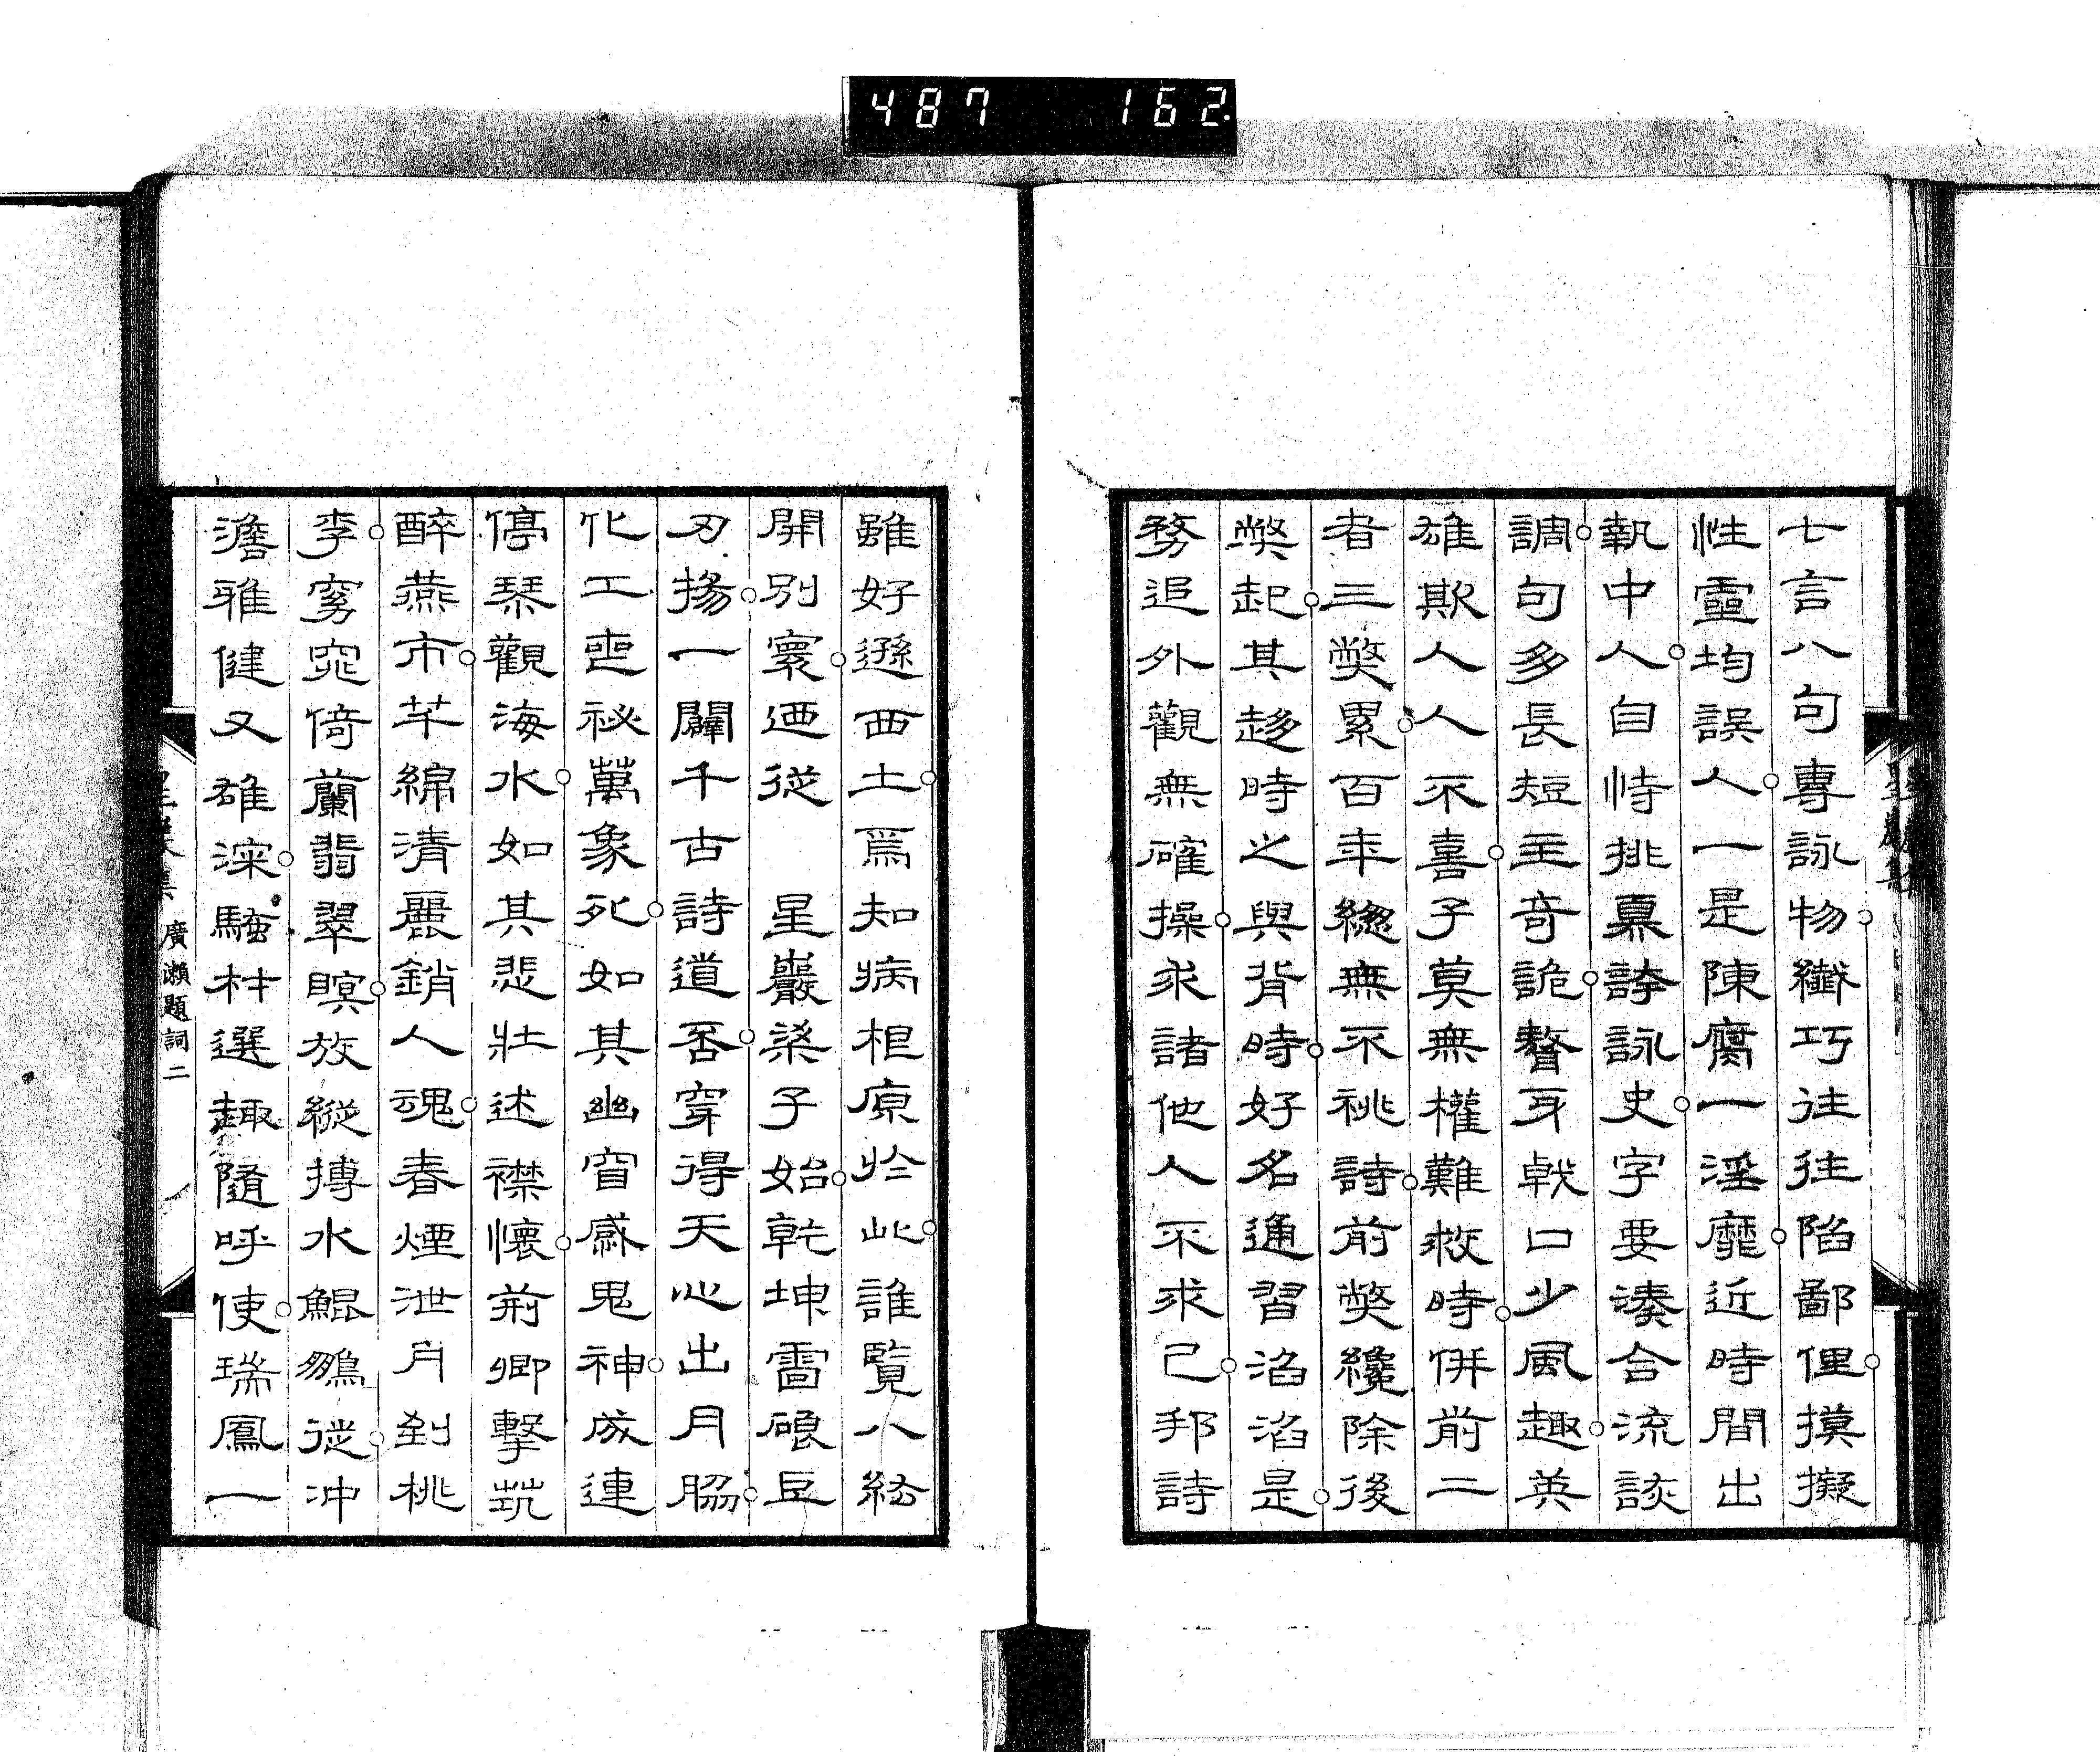 487 162
七言八句專詠物纖巧往往陷鄙俚摸擬
性靈均誤人一是陳腐一淫靡近時間出
執中人自恃挑暴誇詠史字要湊合流談
調句多長短主奇詭聱牙戟口少風趣英
雄欺人人不喜子莫無權難救時併前二
者三獘累百年總無不祧詩前獘纔除後
獘起其趍時之與背時好名通習滔滔是
務追外觀無確操求諸他人不求己邦詩
雖好遜西土爲知病根原於此誰覽八紘
開別寰迺從 星巖梁子始乾坤雷硠巨
刃揚一闢千古詩道否穿得天心出月脇
化工迺祕萬象死如其幽窅感鬼神成連
停琴觀海水如其悲壯述襟懷荊卿擊筑
醉燕市芊綿清麗銷人魂春煙泄月到桃
李窈窕倚蘭翡翠瞑放縱搏水鯤鵬從沖
澹雅健又雄深驅材選趣隨呼使瑞鳳一
廣瀨題詞 二